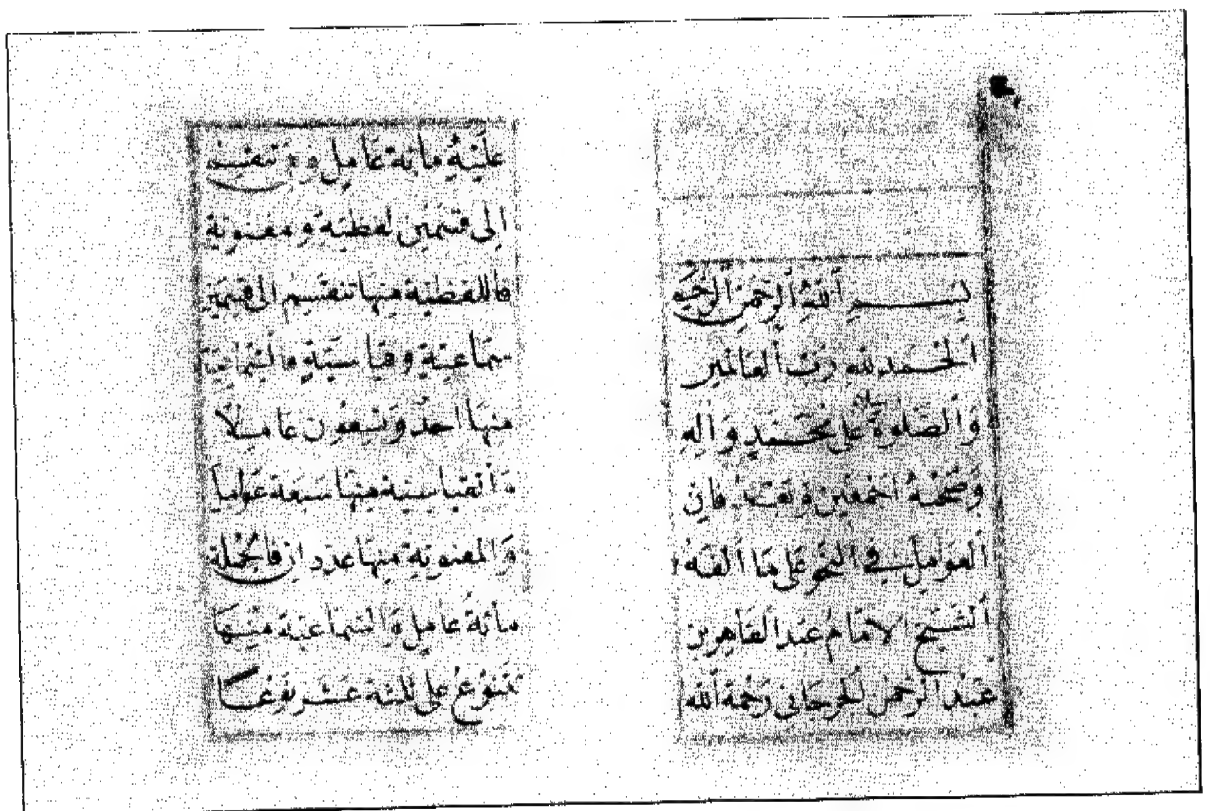 بسم الله الرحمن الرحيم
الحمد لله رب العالمين
والصلوة على محمد وآله
وصحبه اجمعين وبعد فان
العوامل في النحو على ما الفه
الشيخ الامام عبد القاهر بن
عبد الرحمن الجرجاني رحمة الله
عليه مائة عامل وتنقسم
الى قسمين لفظية ومعنوية
فاللفظية منها تنقسم الى قسمين
سماعية وقياسية والسماعية
منها احد وتسعون عاملا
والقياسية منها سبعة عوامل
والمعنوية منها عددان فالجملة
مائة عامل والسماعية منها
تتنوع على ثلثة عشر نوعا